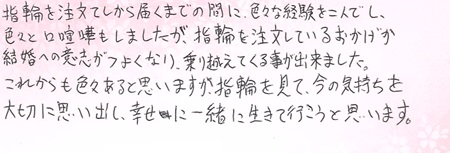 指輪を注文してから届くまでの間に、色々な経験を二人でし、
色々と口喧嘩もしましたが、指輪を注文しているおかげか
結婚への意志がつよくなり、乗り越えてくる事が出来ました。
これからも色々あると思いますが、指輪を見て、今の気持ちを
大切に思い出し、幸せに一緒に生きて行こうと思います。